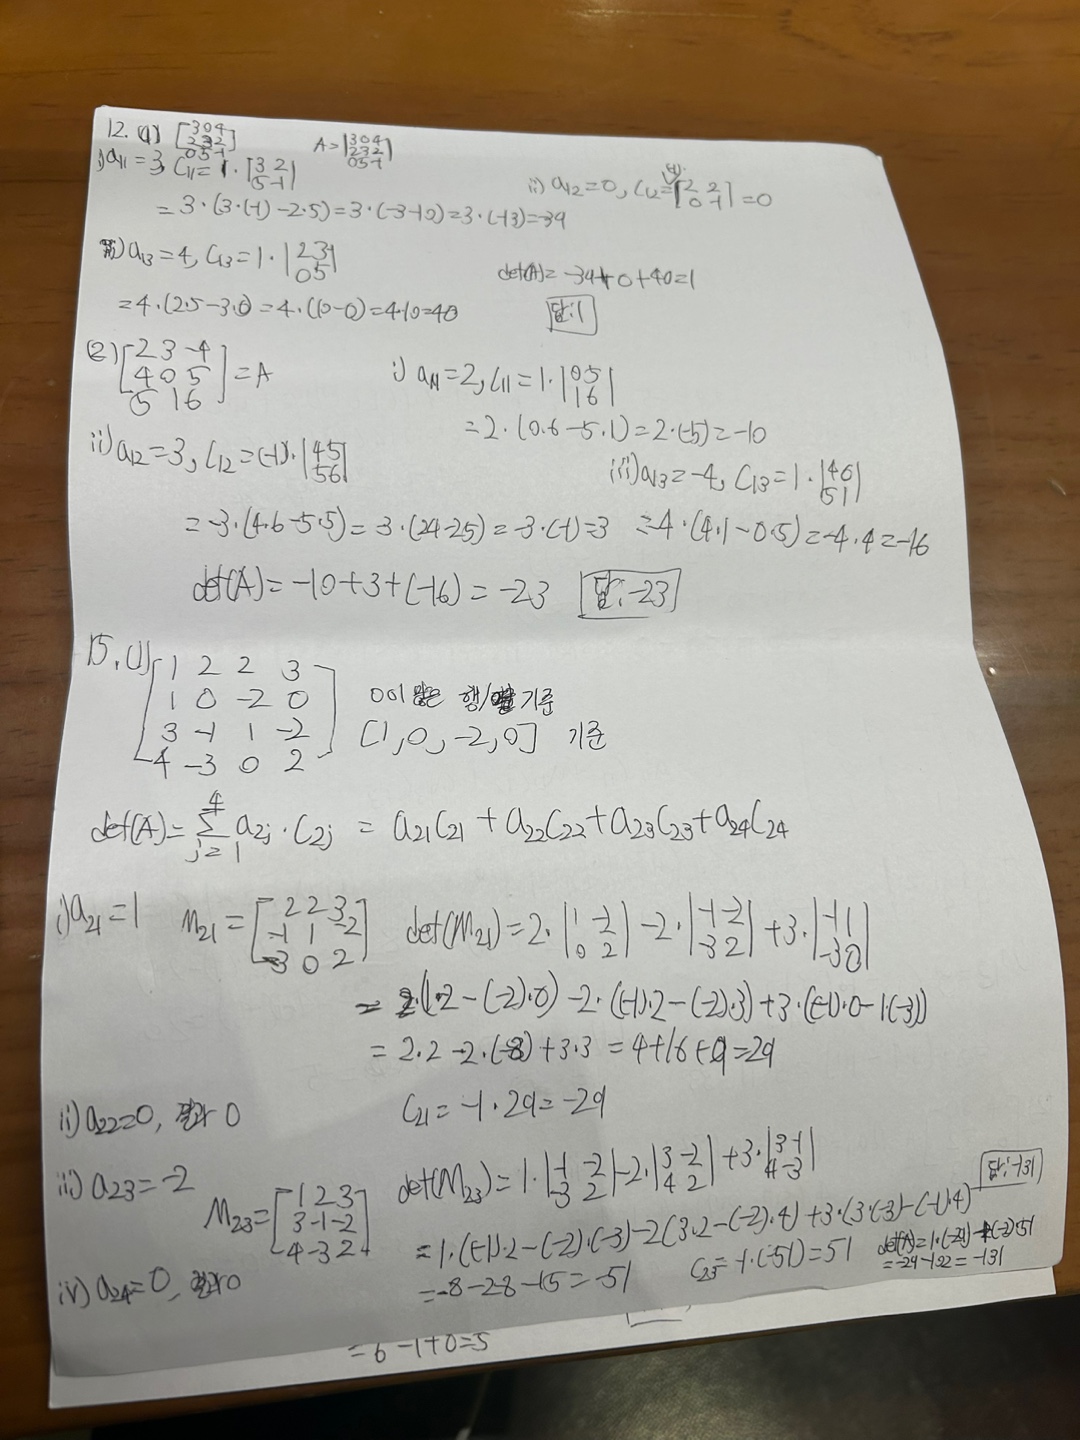 12. (1) [304 232 05-1]  A=|304 232 05-1|
i) a11=3, C11=1·|3 2 5-1|
ii) a12=0, C12=(-1)|2 2 0 -1|=0
=3·(3·(-1)-2·5)=3·(-3-10)=3·(-13)=-39
iii) a13=4, C13=1·|23 05|
det(A)=-39+0+40=1
=4·(2·5-3·0)=4·(10-0)=4·10=40
답:1
(2) [2 3 -4
4 0 5
5 1 6] =A
i) a11=2, C11=1·|05 16|
=2·(0·6-5·1)=2·(-5)=-10
ii) a12=3, C12=(-1)·|45 56|
iii) a13=-4, C13=1·|40 51|
=-3·(4·6-5·5)=3·(24-25)=-3·(-1)=3
=-4·(4·1-0·5)=-4·4=-16
det(A)=-10+3+(-16)=-23
답:-23
15. (1) [1 2 2 3
1 0 -2 0
3 -1 1 -2
4 -3 0 2]
0이 많은 행/열 기준
[1, 0, -2, 0] 기준
det(A)=∑ j=1 4 a2j·C2j = a21C21+a22C22+a23C23+a24C24
i) a21=1
M21=[2 2 3
-1 1 -2
-3 0 2]
det(M21)=2·|1 -2 0 2|-2·|-1 -2 -3 2|+3·|-1 1 -3 0|
=2·(1·2-(-2)·0)-2·((-1)·2-(-2)·3)+3·((-1)·0-1·(-3))
=2·2-2·(-8)+3·3=4+16+9=29
C21=-1·29=-29
ii) a22=0, 결과 0
iii) a23=-2
M23=[1 2 3
3 -1 -2
4 -3 2]
det(M23)=1·|-1 -2 -3 2|-2·|3 -2 4 2|+3·|3 -1 4 -3|
=1·((-1)·2-(-2)·(-3)-2(3·2-(-2)·4)+3·(3·(-3)-(-1)·4)
=-8-28-15=-51
C23=-1·(-51)=51
det(A)=1·(-29)+(-2)·51
=-29-102=-131
답:-131
iv) a24=0, 결과 0
=6-1+0=5